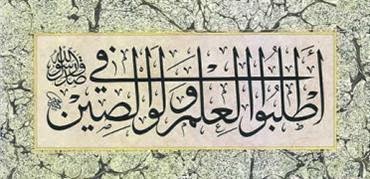 اطلبوا العلم ولو في الصين
صدق رسول الله